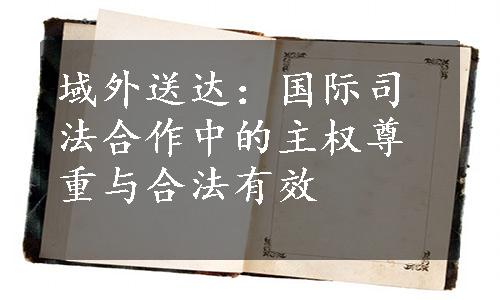 域外送达：国际司
法合作中的主权尊
重与合法有效